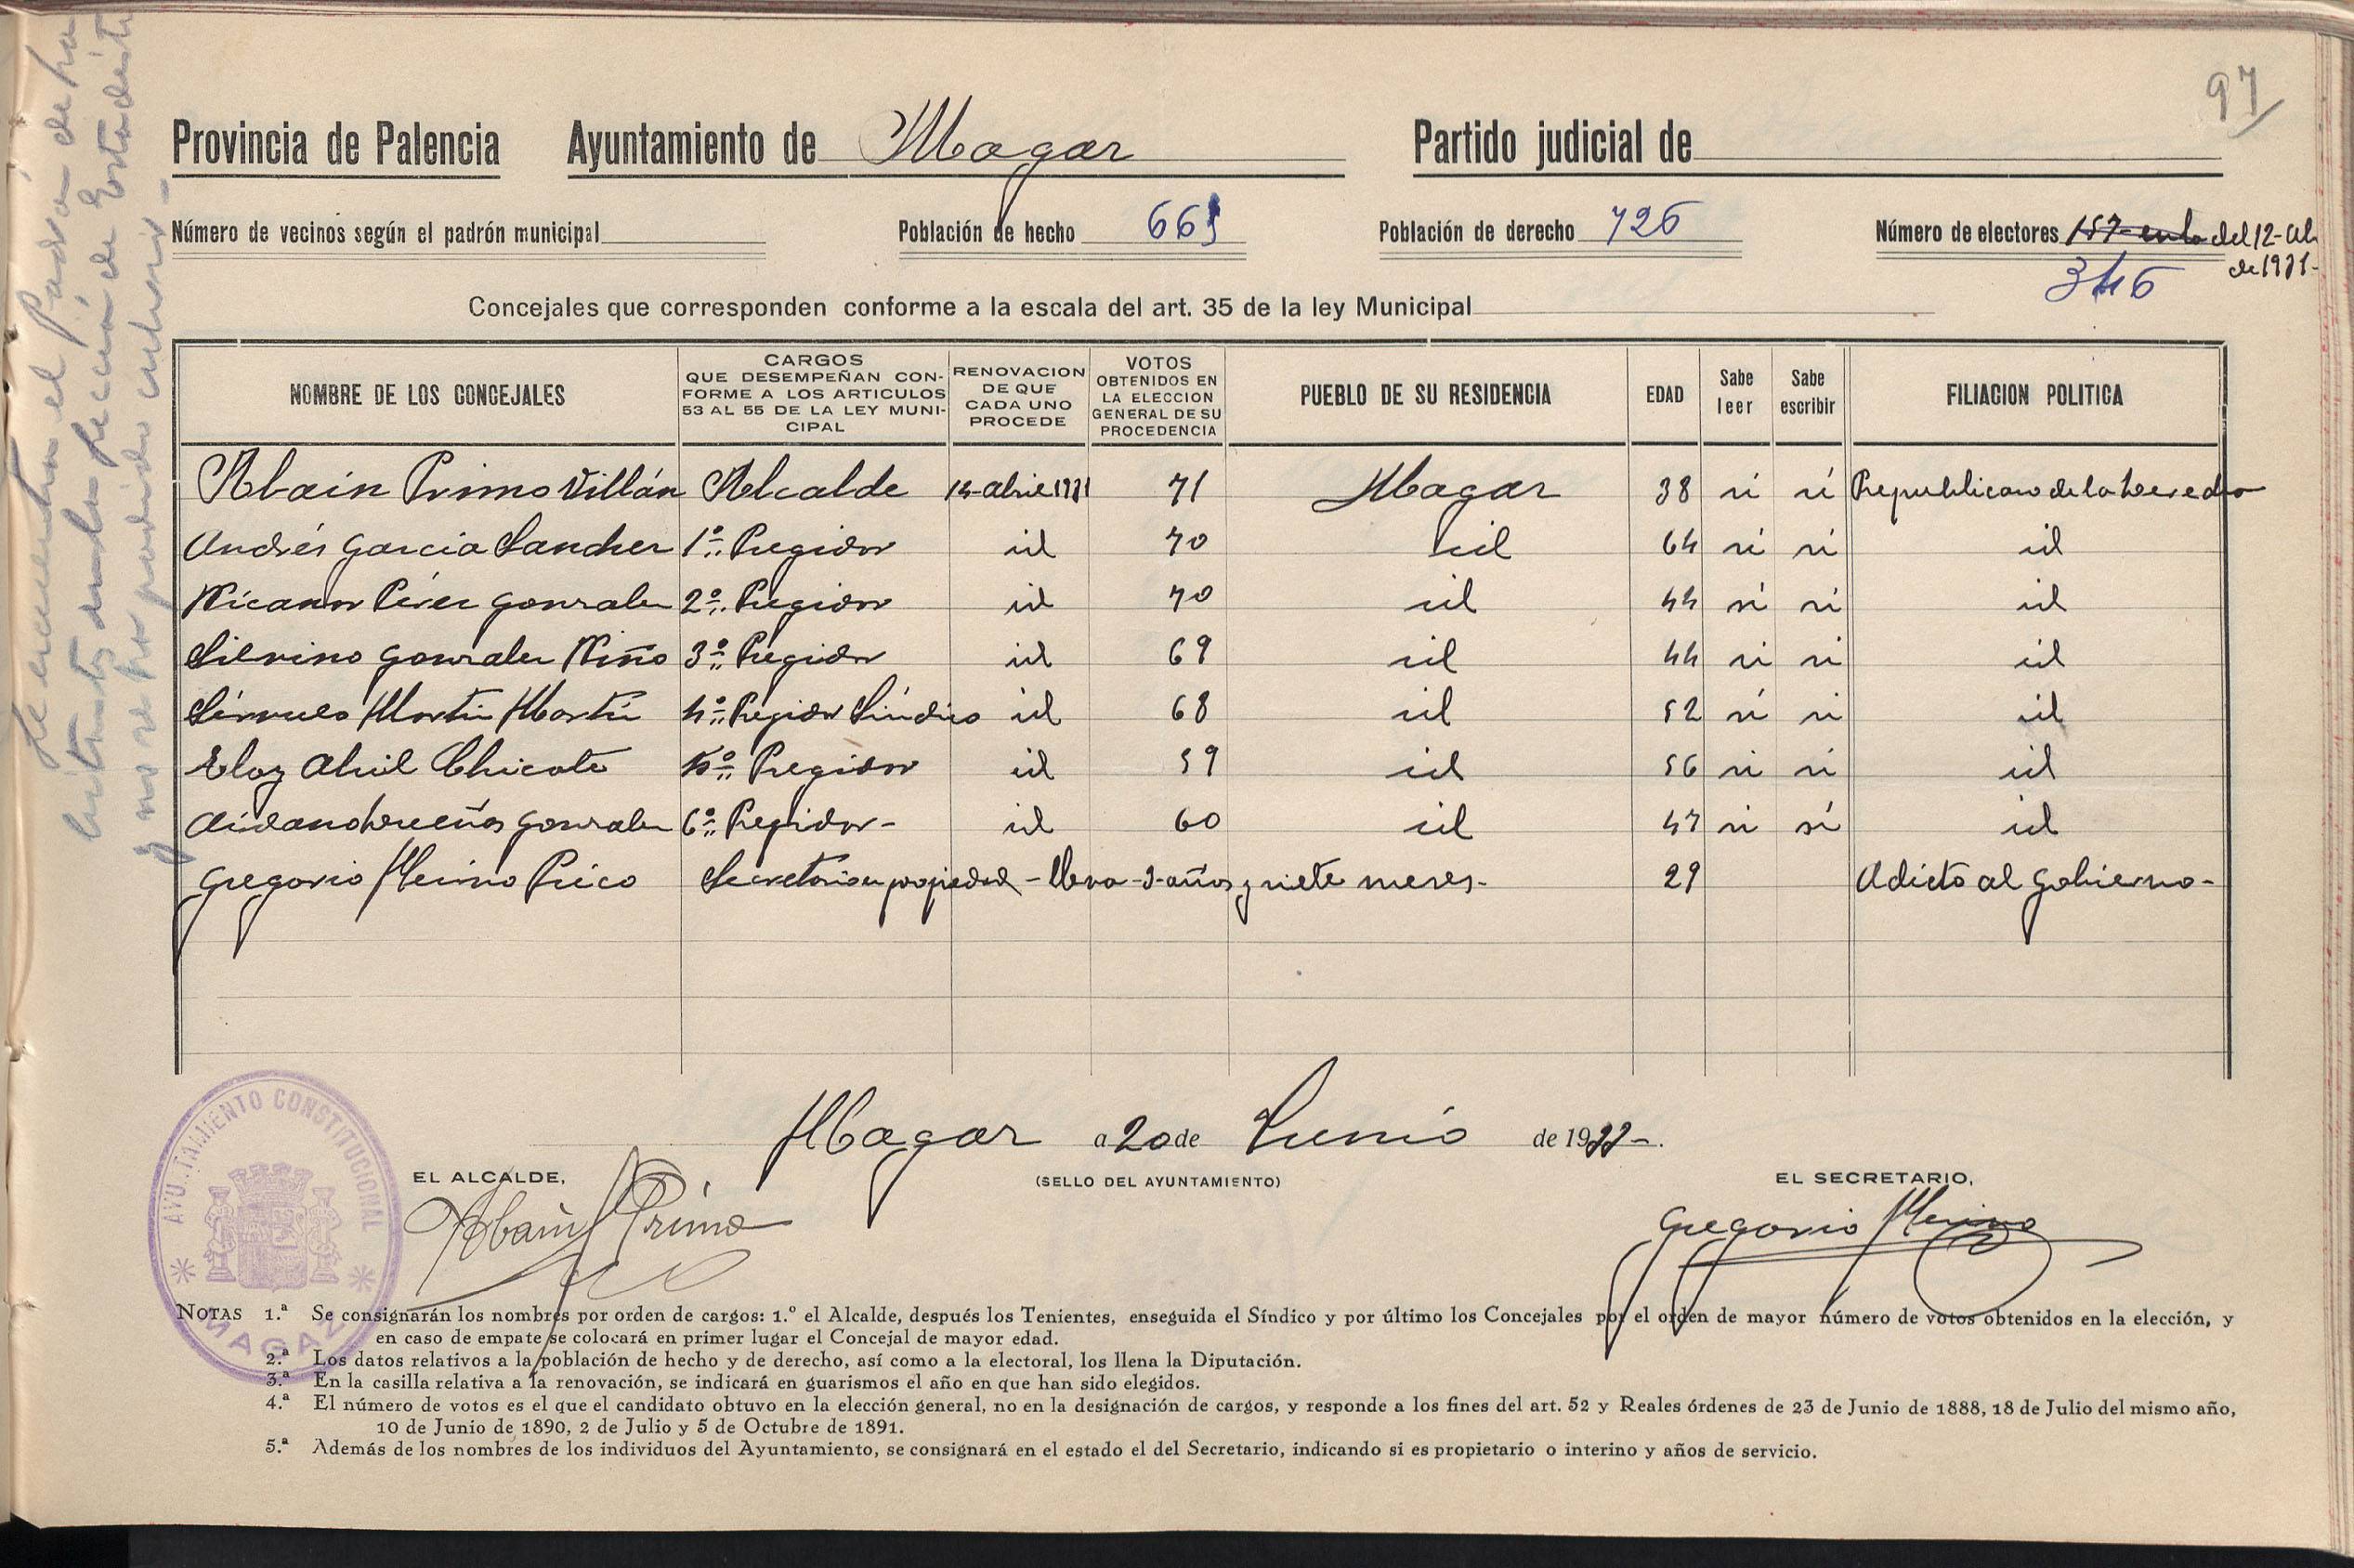 97
Provincia de Palencia Ayuntamiento de Magaz Partido judicial de
Número de vecinos según el padrón municipal Población de hecho 665 Población de derecho 726 Número de electores del 12-Ab
de 1931-
346
Concejales que corresponden conforme a la escala del art. 35 de la ley Municipal
NOMBRE DE LOS CONCEJALES CARGOS QUE DESEMPEÑAN CONFORME A LOS ARTICULOS 53 AL 55 DE LA LEY MUNICIPAL RENOVACION DE QUE CADA UNO PROCEDE VOTOS OBTENIDOS EN LA ELECCION GENERAL DE SU PROCEDENCIA PUEBLO DE SU RESIDENCIA EDAD Sabe leer Sabe escribir FILIACION POLITICA
Primo Villán Alcalde 12-abril 1931 71 Magaz 38 sí sí Republicano de la Derecha
Andrés Garcia Sanchez 1º Regidor id 70 id 64 sí sí id
Nicanor Pérez Gonzalez 2º Regidor id 70 id 44 sí sí id
Silvino Gonzalez Niño 3º Regidor id 69 id 44 si si id
Martin Martín 4º Regidor Síndico id 68 id 52 sí si id
Eloy Abril Chicote 5º Regidor id 59 id 56 si sí id
Gonzalez 6º Regidor- id 60 id 47 si sí id
Gregorio Merino Rico Secretario en propiedad - lleva -3-años y siete meses- 29 Adicto al Gobierno-
Magaz a 20 de Junio de 1933-.
EL ALCALDE, (SELLO DEL AYUNTAMIENTO) EL SECRETARIO,
Primo
Gregorio Merino
AYUNTAMIENTO CONSTITUCIONAL
MAGAZ
NOTAS 1.ª Se consignarán los nombres por orden de cargos: 1.º el Alcalde, después los Tenientes, enseguida el Síndico y por último los Concejales por el orden de mayor número de votos obtenidos en la elección, y
en caso de empate se colocará en primer lugar el Concejal de mayor edad.
2.ª Los datos relativos a la población de hecho y de derecho, así como a la electoral, los llena la Diputación.
3.ª En la casilla relativa a la renovación, se indicará en guarismos el año en que han sido elegidos.
4.ª El número de votos es el que el candidato obtuvo en la elección general, no en la designación de cargos, y responde a los fines del art. 52 y Reales órdenes de 23 de Junio de 1888, 18 de Julio del mismo año,
10 de Junio de 1890, 2 de Julio y 5 de Octubre de 1891.
5.ª Además de los nombres de los individuos del Ayuntamiento, se consignará en el estado el del Secretario, indicando si es propietario o interino y años de servicio.
Se encuentra el Padrón de ha
bitantes en la Sección de Estadística
y no se ha podido cubrir-